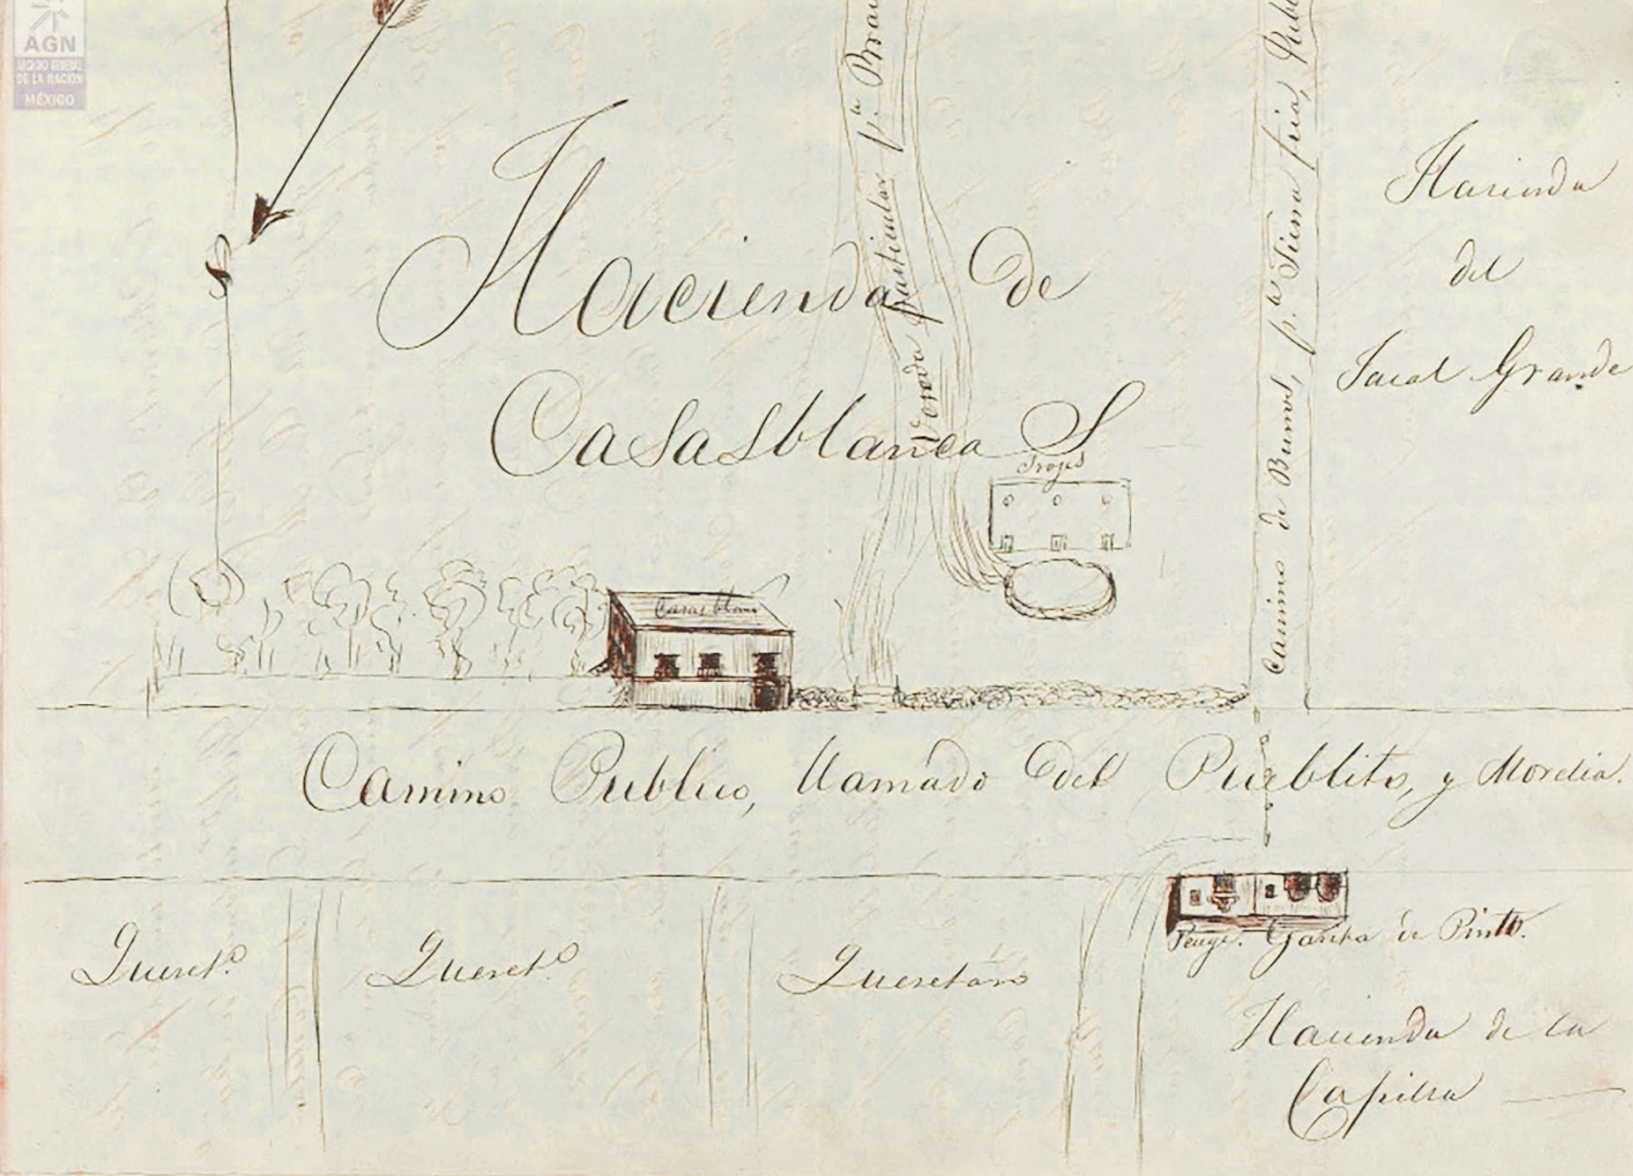 AGN
ARCHIVO GENERAL
DE LA NACIÓN
MÉXICO
Hacienda de
Casasblancas
Vereda particular p.a
Camino de Burros, p.a Tierra fria,
Hacienda
del
Jacal Grande
S
Trojes
Casasblanc
Camino Publico, llamado del Pueblito, y Morelia.
Queret.o
Queret.o
Querétaro
Garita de Pinto.
Hacienda de la
Capilla